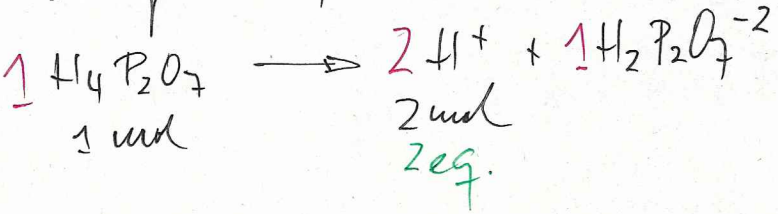 1 H₄P₂O₇ → 2 H⁺ + 1 H₂P₂O₇⁻²
1 mol 2 mol
2 eq.